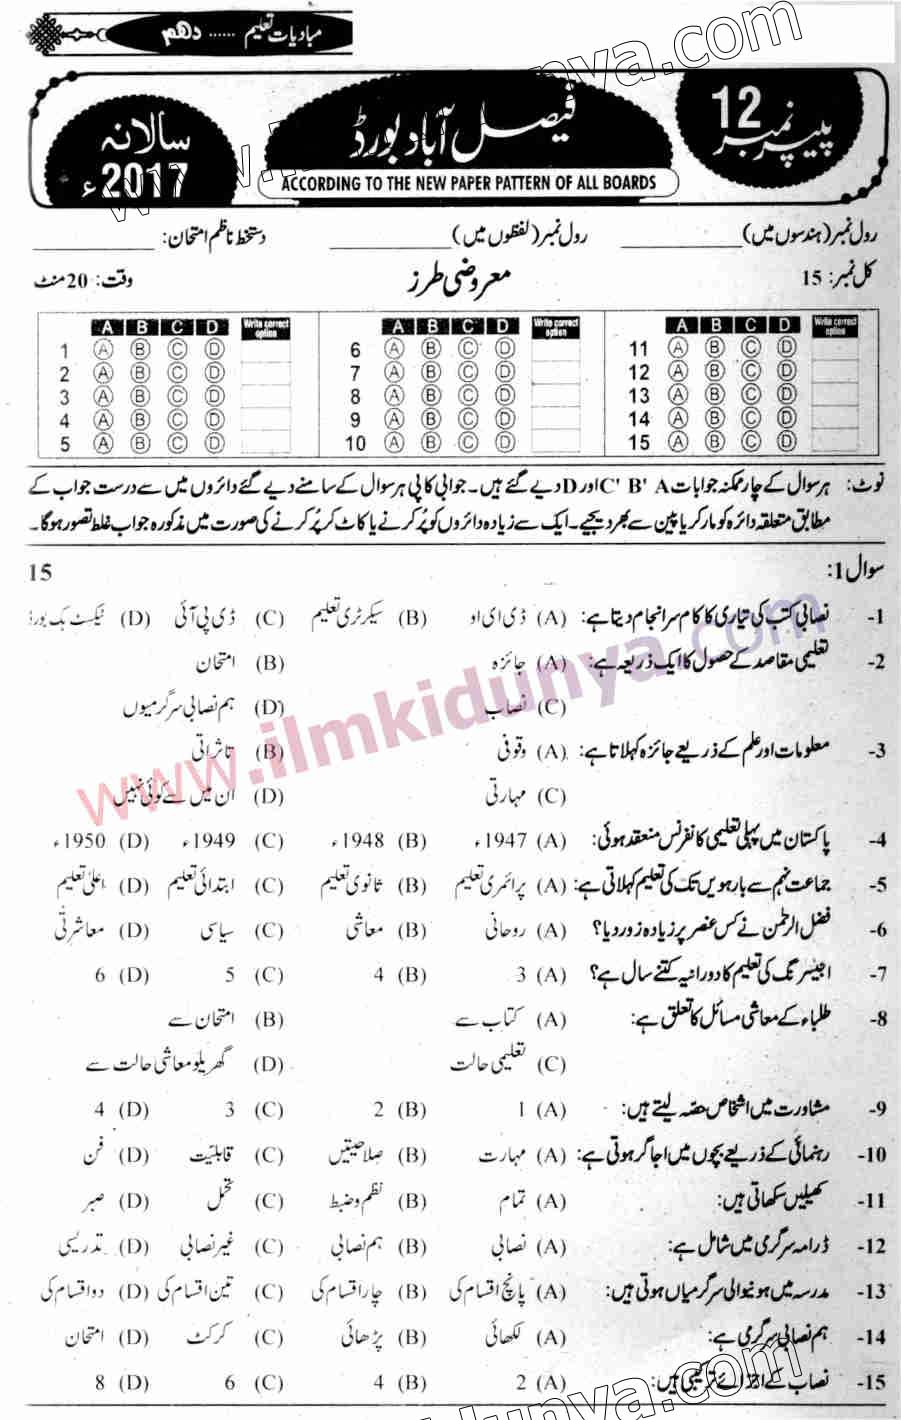 مبادیات تعلیم ...... دہم
پیپر نمبر 12
فیصل آباد بورڈ
سالانہ 2017ء
ACCORDING TO THE NEW PAPER PATTERN OF ALL BOARDS
رول نمبر (ہندسوں میں) ____________ رول نمبر (لفظوں میں) ____________ دستخط ناظم امتحان: ____________
کل نمبر: 15 معروضی طرز وقت: 20 منٹ
A B C D Write correct option A B C D Write correct option A B C D Write correct option
1 A B C D 6 A B C D 11 A B C D
2 A B C D 7 A B C D 12 A B C D
3 A B C D 8 A B C D 13 A B C D
4 A B C D 9 A B C D 14 A B C D
5 A B C D 10 A B C D 15 A B C D
نوٹ: ہر سوال کے چار ممکنہ جوابات A 'B 'C اور D دیے گئے ہیں۔ جوابی کاپی ہر سوال کے سامنے دیے گئے دائروں میں سے درست جواب کے
مطابق متعلقہ دائرہ کو مارکر یا پین سے بھر دیجیے۔ ایک سے زیادہ دائروں کو پُر کرنے یا کاٹ کر پُر کرنے کی صورت میں مذکورہ جواب غلط تصور ہوگا۔
سوال 1: 15
1- نصابی کتب کی تیاری کا کام سرانجام دیتا ہے: (A) ڈی ای او (B) سیکرٹری تعلیم (C) ڈی پی آئی (D) ٹیکسٹ بک بورڈ
2- تعلیمی مقاصد کے حصول کا ایک ذریعہ ہے: (A) جائزہ (B) امتحان
(C) نصاب (D) ہم نصابی سرگرمیوں
3- معلومات اور علم کے ذریعے جائزہ کہلاتا ہے: (A) وقوفی (B) تاثراتی
(C) مہارتی (D) ان میں سے کوئی نہیں
4- پاکستان میں پہلی تعلیمی کانفرنس منعقد ہوئی: (A) 1947ء (B) 1948ء (C) 1949ء (D) 1950ء
5- جماعت نہم سے بارہویں تک کی تعلیم کہلاتی ہے: (A) پرائمری تعلیم (B) ثانوی تعلیم (C) ابتدائی تعلیم (D) اعلیٰ تعلیم
6- فضل الرحمٰن نے کس عنصر پر زیادہ زور دیا؟ (A) روحانی (B) معاشی (C) سیاسی (D) معاشرتی
7- انجینئرنگ کی تعلیم کا دورانیہ کتنے سال ہے؟ (A) 3 (B) 4 (C) 5 (D) 6
8- طلباء کے معاشی مسائل کا تعلق ہے: (A) کتاب سے (B) امتحان سے
(C) تعلیمی حالت (D) گھریلو معاشی حالت سے
9- مشاورت میں اشخاص حصہ لیتے ہیں: (A) 1 (B) 2 (C) 3 (D) 4
10- رہنمائی کے ذریعے بچوں میں اجاگر ہوتی ہے: (A) مہارت (B) صلاحیتیں (C) قابلیت (D) فن
11- کھیلیں سکھاتی ہیں: (A) تمام (B) نظم و ضبط (C) تحمل (D) صبر
12- ڈرامہ سرگرمی میں شامل ہے: (A) نصابی (B) ہم نصابی (C) غیر نصابی (D) تدریسی
13- مدرسہ میں ہونیوالی سرگرمیاں ہوتی ہیں: (A) پانچ اقسام کی (B) چار اقسام کی (C) تین اقسام کی (D) دو اقسام کی
14- ہم نصابی سرگرمی ہے: (A) لکھائی (B) پڑھائی (C) کرکٹ (D) امتحان
15- نصاب کے اجزائے ترکیبی ہیں: (A) 2 (B) 4 (C) 6 (D) 8
www.ilmkidunya.com